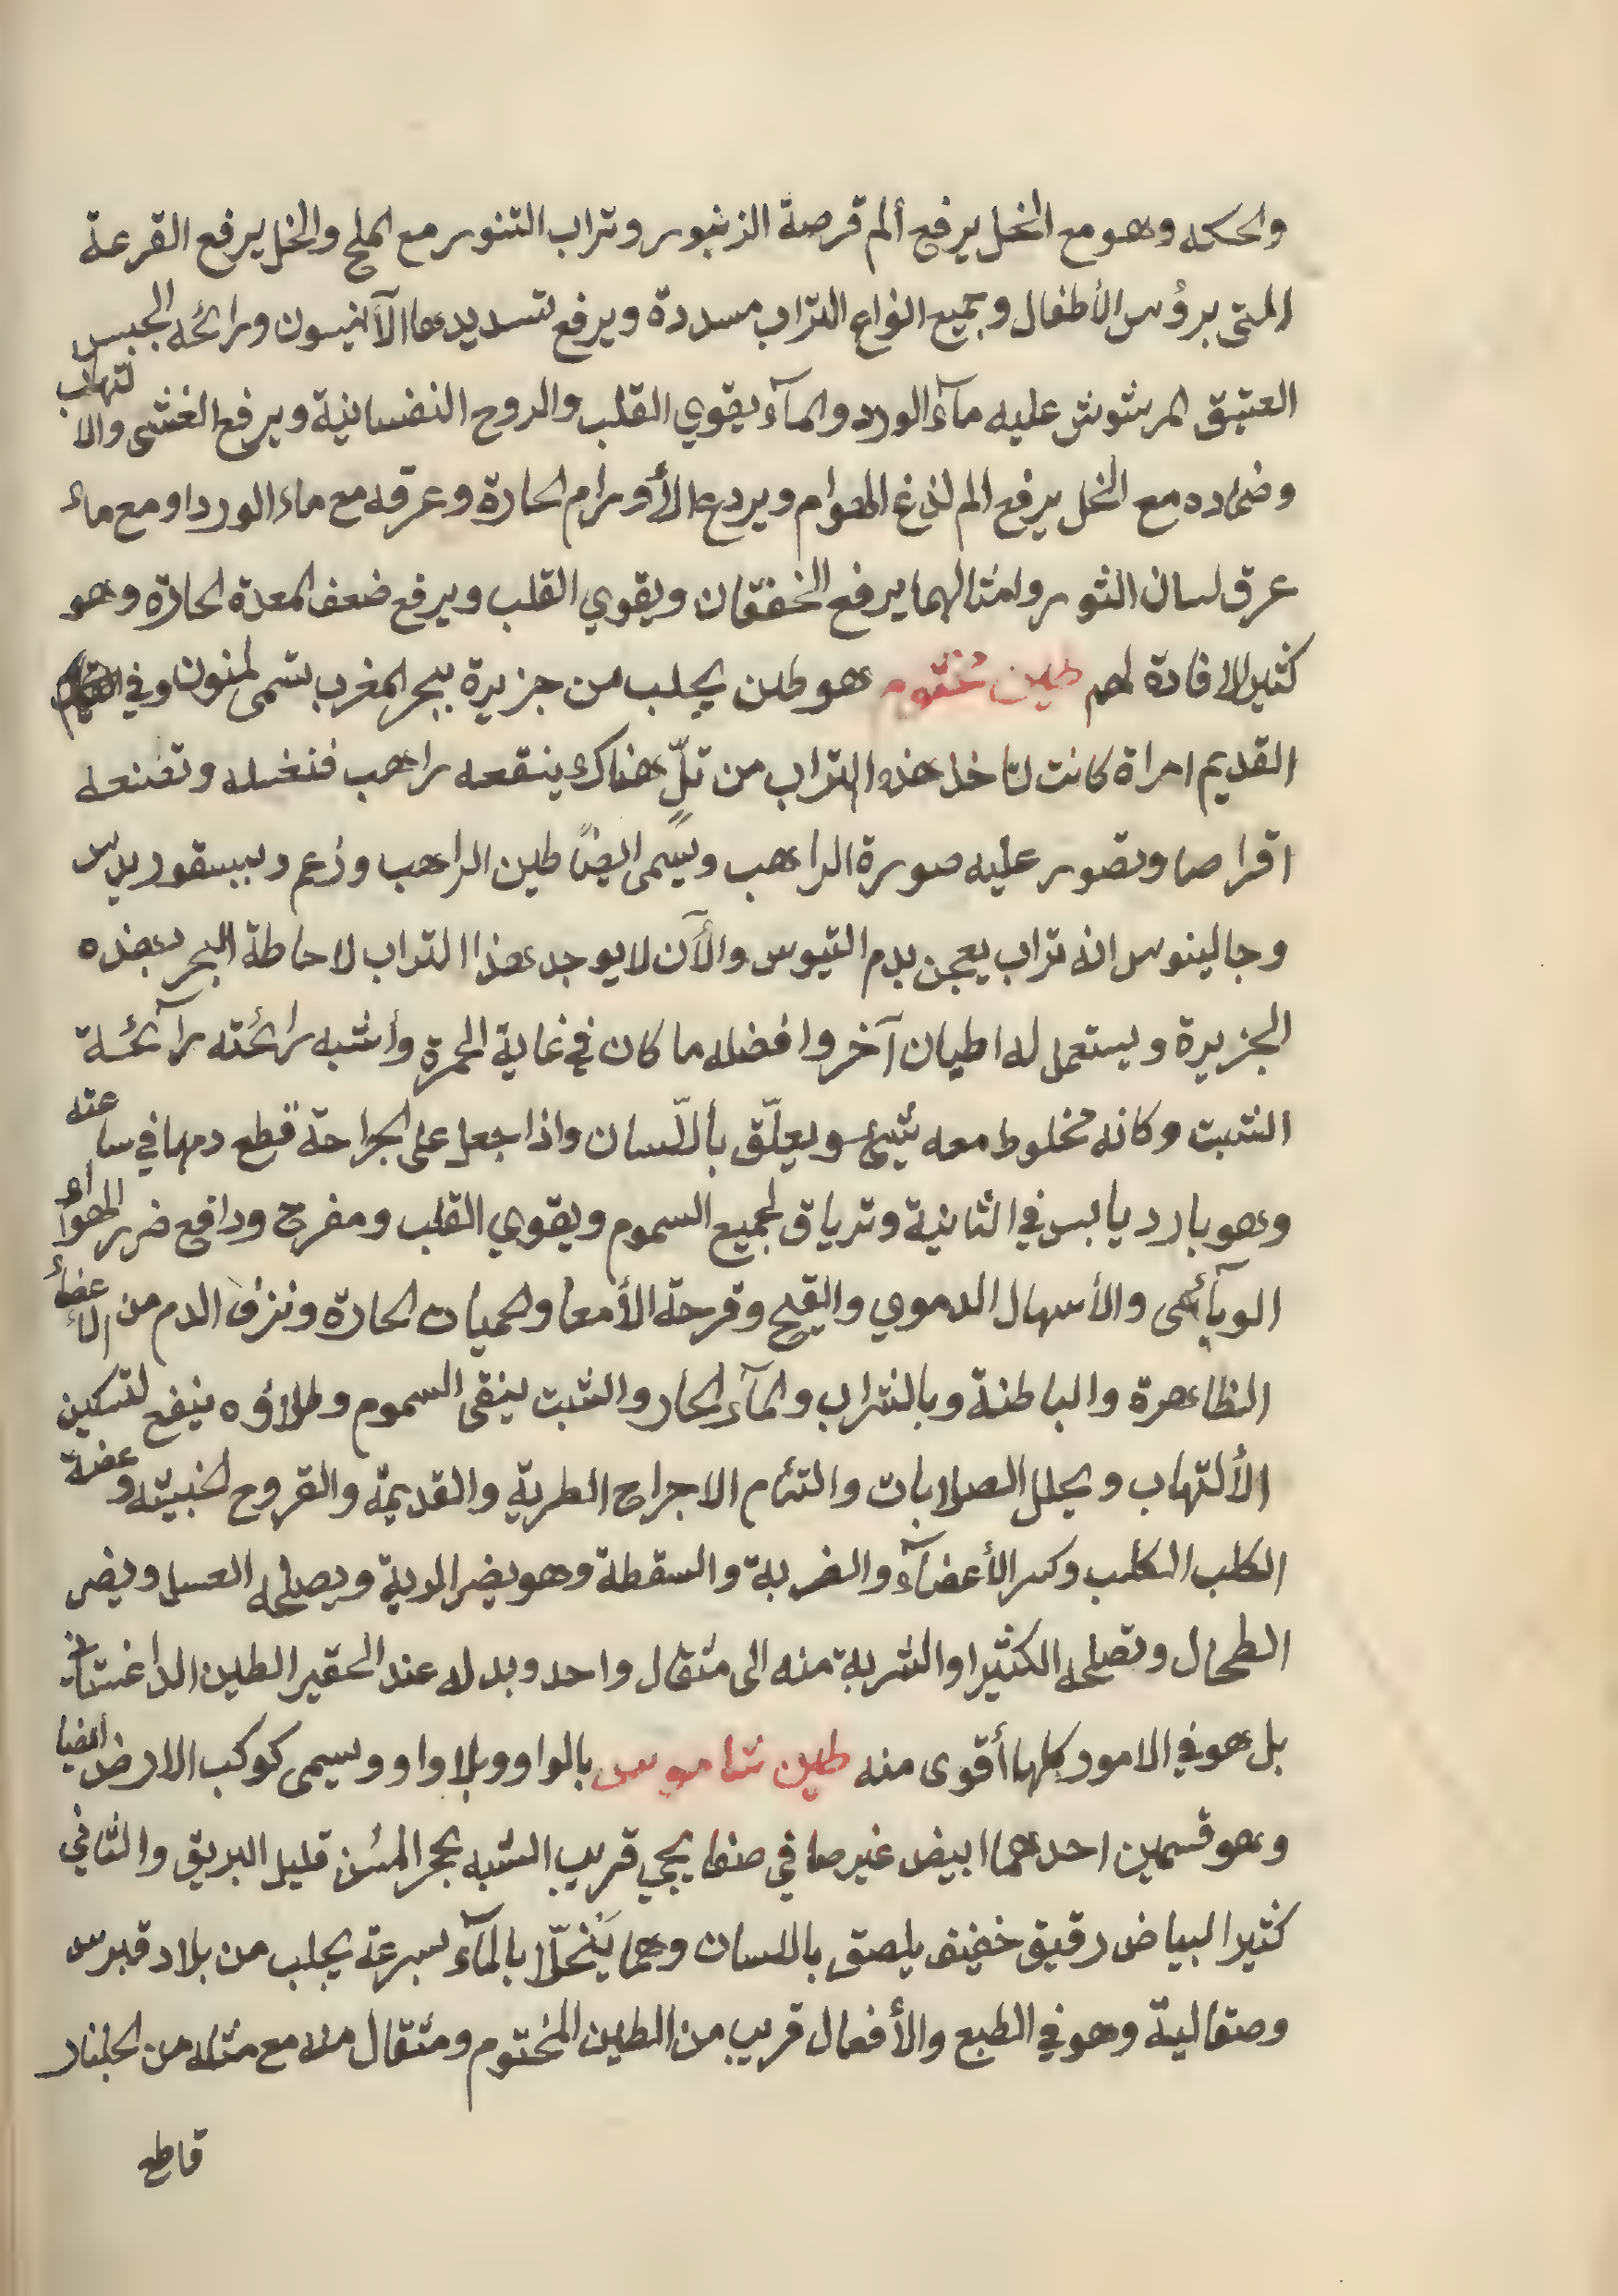 والحكه وهو مع الخل يرفع ألم قرصة الزنبور وتراب التنور مع الملح والخل يرفع القرعة
التى برؤس الأطفال وجميع انواع التراب مسددة ويرفع تسديدها الآنيسون ورائحه الجبس
العتيق المرشوش عليه مآء الورد والمآء يقوي القلب والروح النفسانية ويرفع الغشى والالتهاب
وضماده مع الخل يرفع الم لذغ الهوام ويردع الأورام الحارة وعرقه مع ماء الورد او مع ماء
عرق لسان الثور وامثالهما يرفع الخفقان ويقوي القلب ويرفع ضعف المعدة الحارة وهو
كثير الافادة لهم طين مختوم هو طين يجلب من جزيرة ببحر المغرب تسمى لمنون وفي
القديم امراة كانت تاخذ هذه التراب من تلٍّ هناك ينقعه راهب فتغسله وتصنعه
اقراصا وتصور عليه صورة الراهب ويسمى ايضًا طين الراهب وزعم ديسقوريدس
وجالينوس انه تراب يعجن بدم التيوس والآن لا يوجد هذا التراب لاحاطة البحر بهذه
الجزيرة ويستعمل له اطيان آخر وافضله ما كان في غاية الحمرة وأشبه رائحته رآئحة
الشبت وكانه مخلوط معه شيئ ويعلّق باللّسان واذا جعل على الجراحة قطع دمها في ساعته
وهو بارد يابس في الثانية وترياق لجميع السموم ويقوي القلب ومفرح ودافع ضرر الهواء
الوبآئى والأسهال الدموي والقيح وقرحة الأمعا والحميات الحارة ونزف الدم من الأعضاء
الظاهرة والباطنة وبالشراب والمآء الحار والشبت ينقى السموم وطلاؤه ينفع لتسكين
الألتهاب ويحلل الصلابات والتئام الاجراح الطرية والقديمة والقروح الخبيثه وعضة
الكلب الكلب وكسر الأعضآء والضربة والسقطة وهو يضر الرية ويصلحه العسل ويضر
الطحال وتصلحه الكثيرا والشربة منه الى مثقال واحد وبدله عند الحقير الطين الداغستانى
بل هو في الامور كلها أقوى منه طين شاموس بالواو وبلا واو ويسمى كوكب الارض أيضا
وهو قسمين احدهما ابيض غير صافي صفايحي قريب الشبه بحجر المسن قليل البريق والثاني
كثير البياض رقيق خفيف يلصق باللسان وهما يَنْحَلّا بالمآء بسرعة يجلب من بلاد قبرس
وصقالية وهو في الطبع والأفعال قريب من الطين المختوم ومثقال منه مع مثله من الجلنار
قاطع